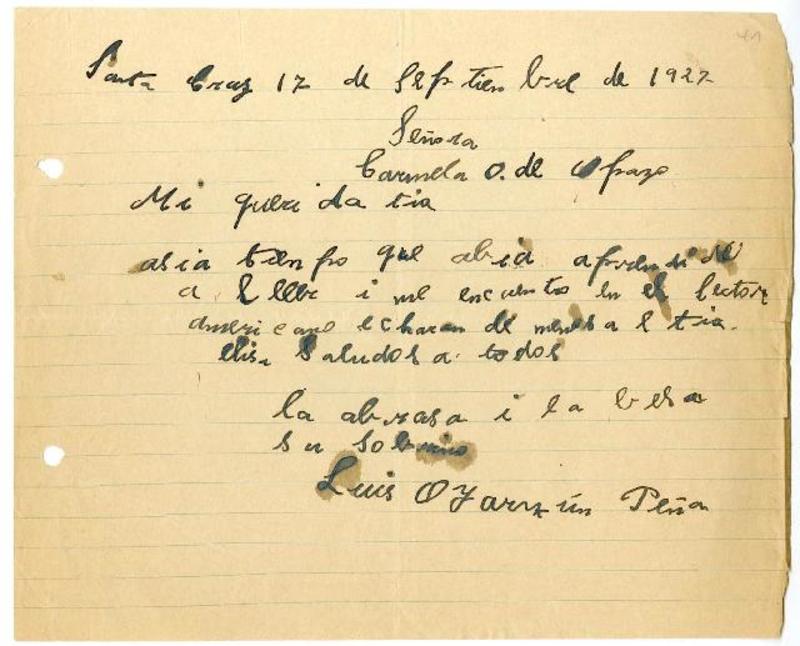 Santa Cruz 17 de Septienbre de 1927
Señora
Carmela O. de Opazo
Mi querida tia
asia tienpo que abia aprendido
a leer i me encuentro en el lector
americano echaran de menos a l tia.
elisa Saludos a todos
la abrasa i la besa
su sobrino
Luis Oyarzún Peña